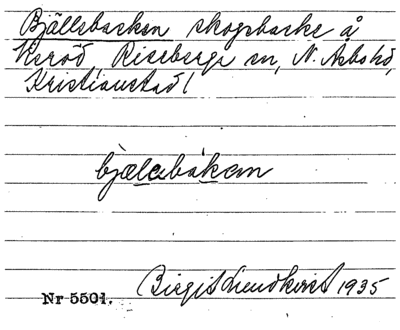 Bjällsbacken skogsbacke å
Heröd, Riseberga sn, N. Åsbo hd,
Kristianstad l
bjælsbakan
Nr 5501. Birgit Lundkvist 1935